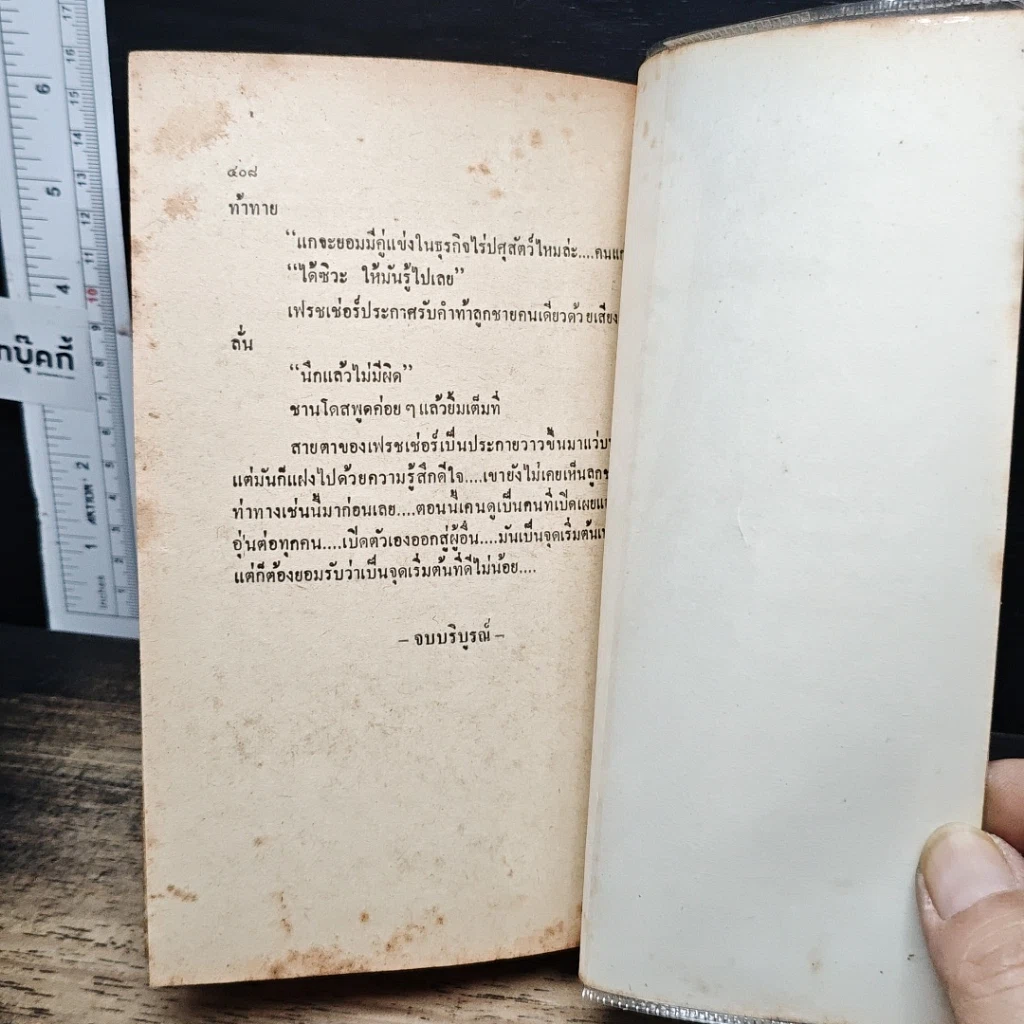 ๔๐๘
ท้าทาย
“แกจะยอมมีคู่แข่งในธุรกิจไร่ปศุสัตว์ไหมล่ะ....คน
“ได้ซิวะ ให้มันรู้ไปเลย”
เฟรชเช่อร์ประกาศรับคำท้าลูกชายคนเดียวด้วยเสียง
ลั่น
“นึกแล้วไม่มีผิด”
ชานโดสพูดค่อย ๆ แล้วยิ้มเต็มที่
สายตาของเฟรชเช่อร์เป็นประกายวาวขึ้นมาแว่บ
แต่มันก็แฝงไปด้วยความรู้สึกดีใจ....เขายังไม่เคยเห็นลูก
ท่าทางเช่นนี้มาก่อนเลย....ตอนนี้เคนดูเป็นคนที่เปิดเผย
อุ่นต่อทุกคน....เปิดตัวเองออกสู่ผู้อื่น....มันเป็นจุดเริ่มต้น
แต่ก็ต้องยอมรับว่าเป็นจุดเริ่มต้นที่ดีไม่น้อย....
– จบบริบูรณ์ –
6
5
4
2
1
17
16
15
14
13
12
11
10
9
8
inches
บุ๊คกี้